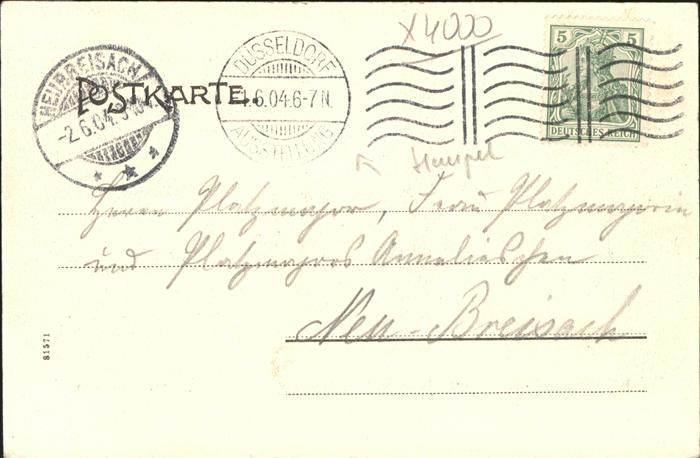 X4000
5 5
DEUTSCHES REICH
DÜSSELDORF
1.6.04.6-7N.
AUSSTELLUNG
NEUBREISACH
-2.6.04.
POSTKARTE.
Stempel
Herrn Platzmajor, Frau Platzmajorin
und Platzmajors Annelieschen
Neu-Breisach
81571